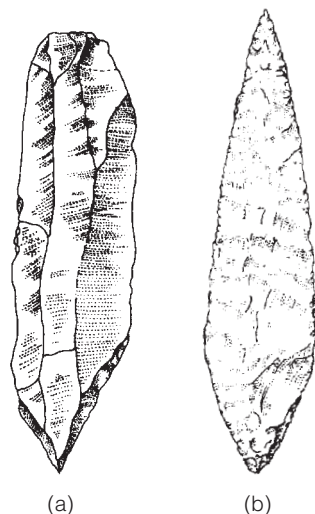 (a) (b)